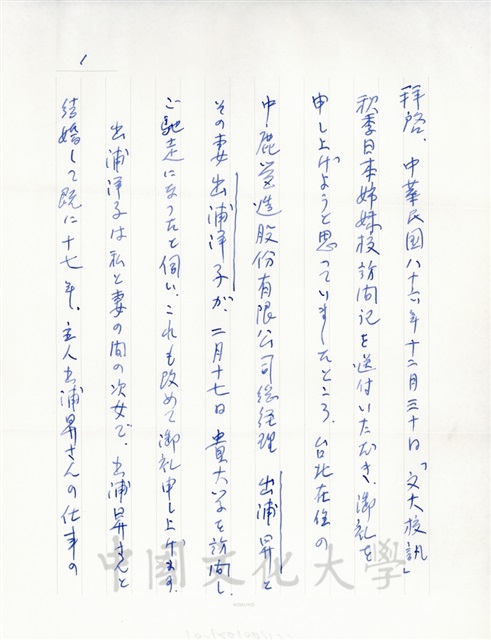 1
拝啓、中華民国八十六年十二月三十日「文大校訊」
秋季日本姉妹校訪問記を送付いただき、御礼を
申し上げようと思っていましたところ、台北在住の
中鹿営造股份有限公司総経理 出浦昇と
その妻出浦洋子が、二月十七日 貴大学を訪問し、
ご馳走になったと伺い、これも改めて御礼申し上げます。
出浦洋子は私と妻の間の次女で、出浦昇さんと
結婚して既に十七年。主人出浦昇さんの仕事の
中國文化大學
KOKUYO